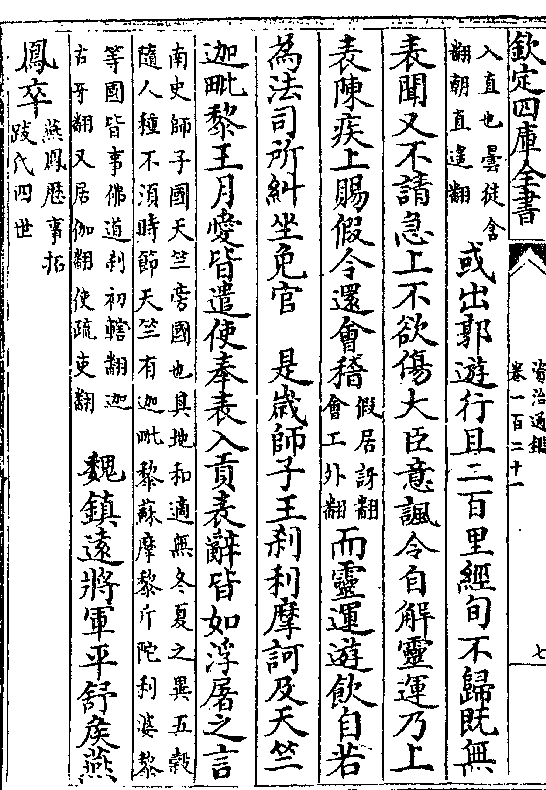 欽定四庫全書
資治通鑑
卷一百二十一
七
入直也曇徒含
翻朝直遥翻
或出郭遊行且二百里經旬不歸既無
表聞又不請急上不欲傷大臣意諷令自解靈運乃上
表陳疾上賜假令還會稽
假居訝翻
會工外翻
而靈運遊飲自若
為法司所糾坐免官 是歲師子王刹利摩訶及天竺
迦毗黎王月愛皆遣使奉表入貢表辭皆如浮屠之言
南史師子國天竺旁國也其地和適無冬夏之異五穀
隨人種不須時節天竺有迦毗黎蘇摩黎斤陀利婆黎
等國皆事佛道刹初轄翻迦
古牙翻又居伽翻使疏吏翻
魏鎮遠將軍平舒侯燕
鳳卒
燕鳳歷事拓
跋氏四世